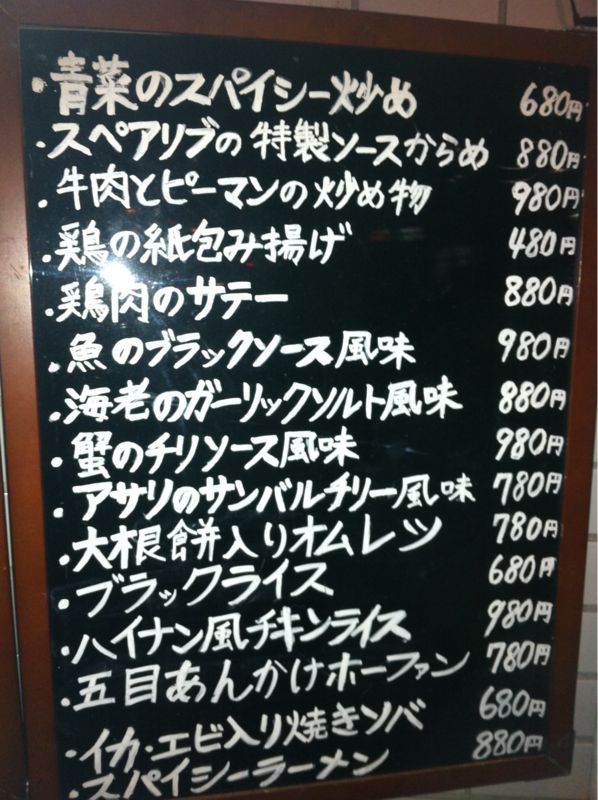 ・青菜のスパイシー炒め 680円
・スペアリブの特製ソースからめ 880円
・牛肉とピーマンの炒め物 980円
・鶏の紙包み揚げ 480円
・鶏肉のサテー 880円
・魚のブラックソース風味 980円
・海老のガーリックソルト風味 880円
・蟹のチリソース風味 980円
・アサリのサンバルチリー風味 780円
・大根餅入りオムレツ 780円
・ブラックライス 680円
・ハイナン風チキンライス 980円
・五目あんかけホーファン 780円
・イカ・エビ入り焼きソバ 680円
・スパイシーラーメン 880円